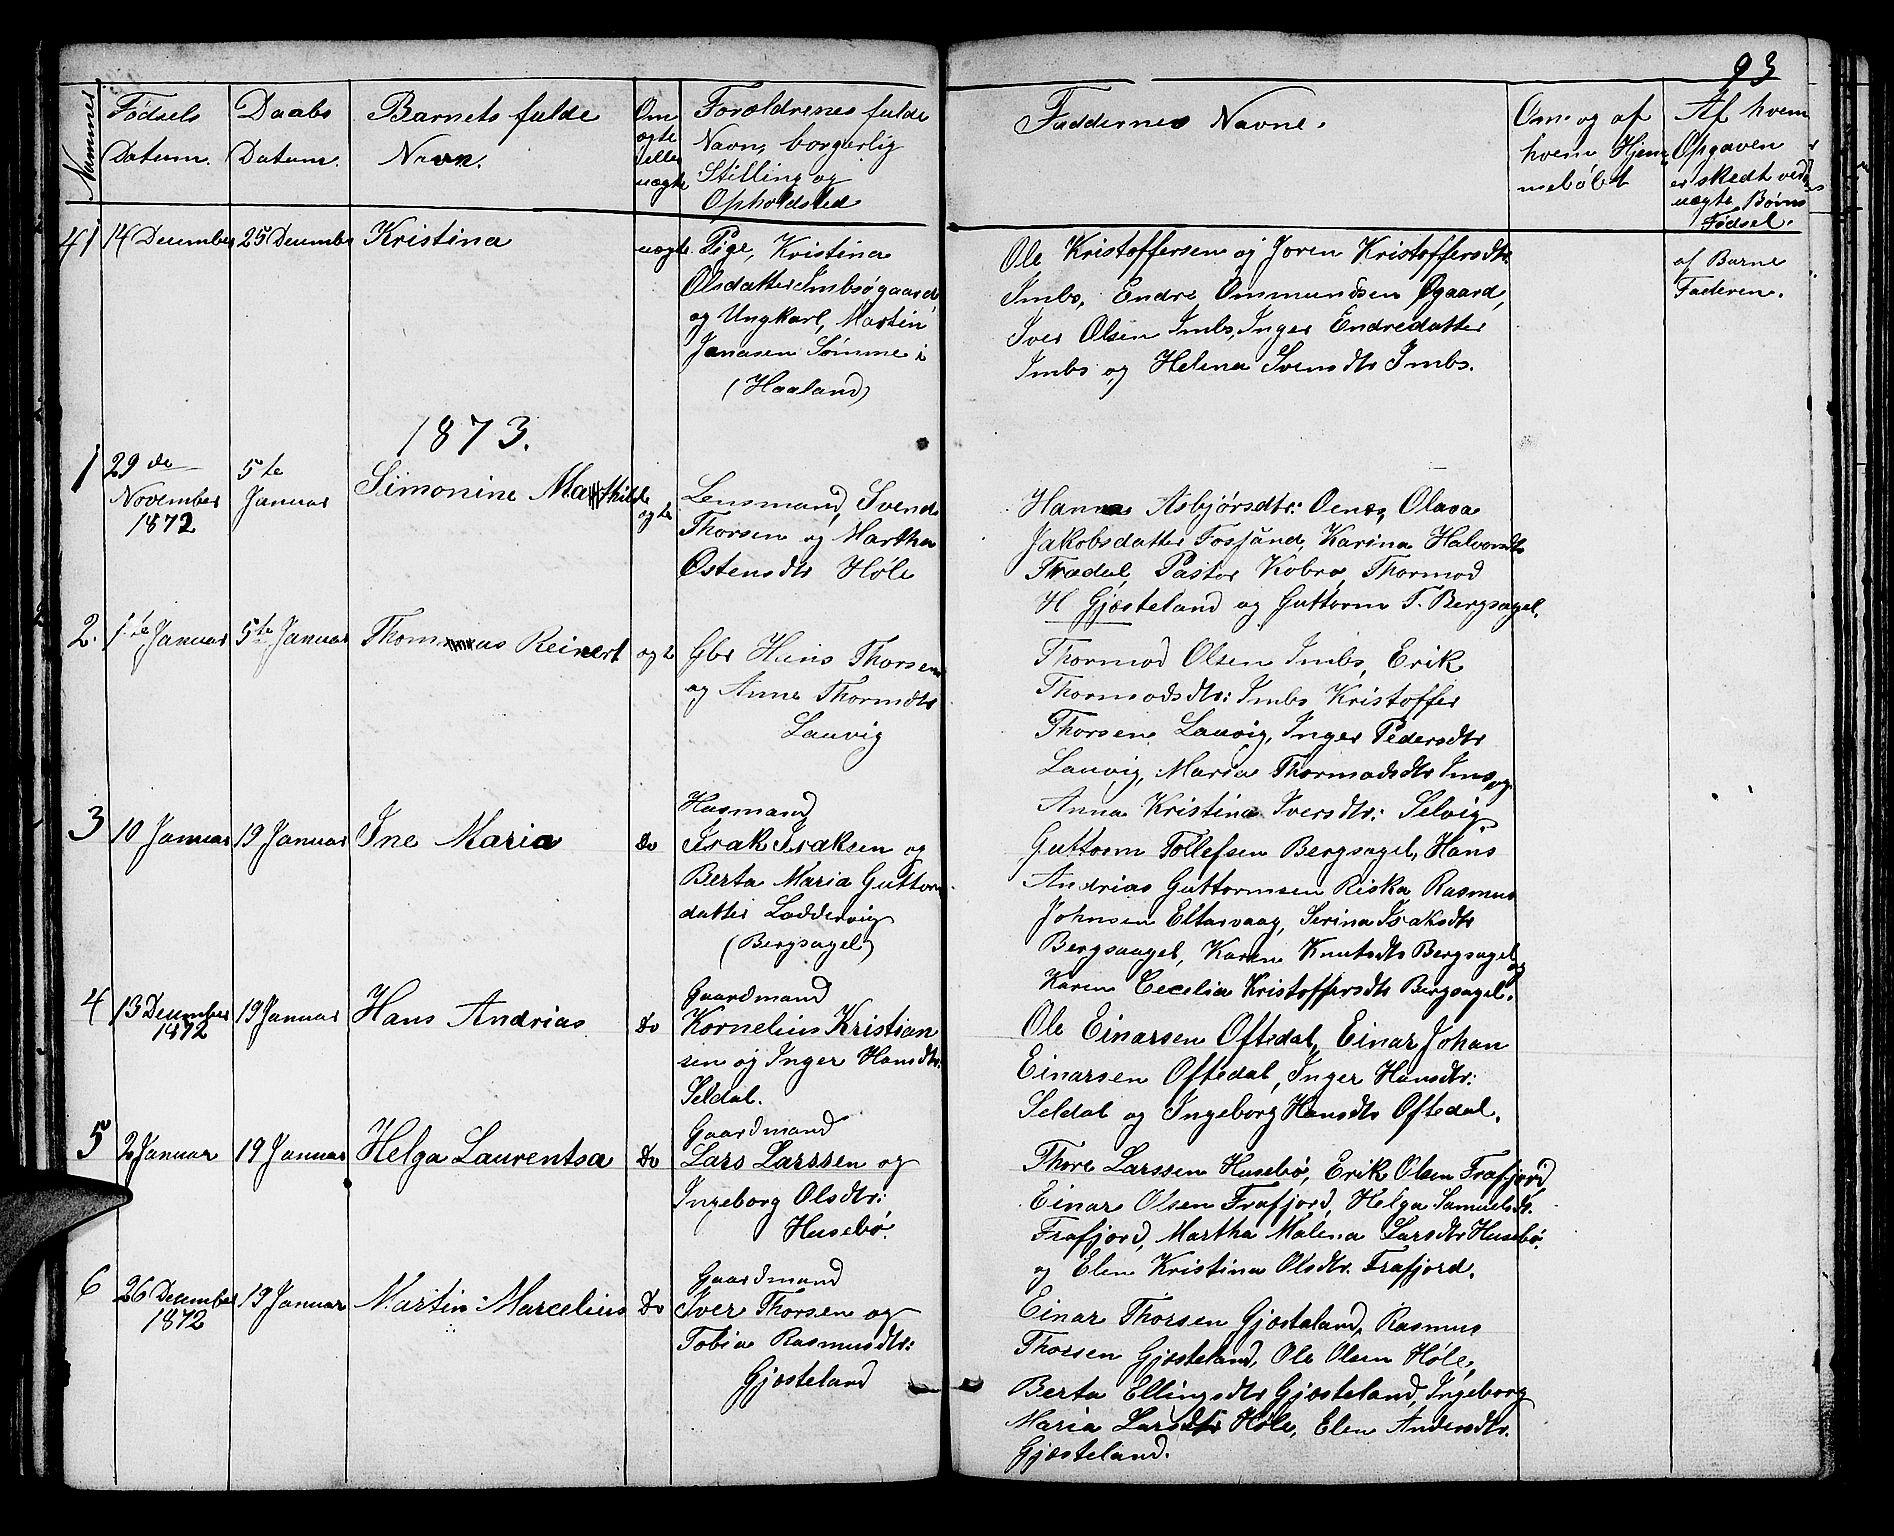 93
Nummer
Fødsels
Datum.
Daabs
Datum.
Barnets fulde
Navn.
Om
ægte
eller
uægte
Forældrenes fulde
Navn, borgerlig
Stilling og
Opholdsted
Faddernes Navne.
Om og af
hvem Hjem
medøbt
Af hvem
Opgaven
er skedt ved
uægte Børns
Fødsel.
41 14 December 25 December Kristina uægte
Pige, Kristina
Olsdatter Imbsøgaard
og Ungkarl, Martin
Janasen Sømme i
(Haaland)
Ole Kristoffersen og Joren Kristoffersdtr:
Imbs, Endre Ommundsen Øgaard,
Iver Olsen Imbs, Inger Endredatter
Imbs og Helena Svensdtr Imbs.
af Barne
Faderen.
1873.
1 29de
November
1872
5te
Januar
Simonine Mathilde
ægte
Lensmand, Svend
Thorsen og Martha
Østensdtr Høle
Hanna Asbjørsdtr: Oenæs, Olava
Jakobsdatter Fossand, Karina Halvorsdtr
Trædal, Pastor Kobro, Thormod
H Gjesteland og Guttorm T. Bergsagel.
2. 1te Januar 5te Januar Thomas Reinert ægte
Gbr Hans Thorsen
og Anne Thormdtr
Lauvig
Thormod Olsen Imbs, Erik
Thormodsdtr: Imbs Kristoffer
Thorsen Lauvig, Inger Pedersdtr
Lauvig, Maria Thormodsdtr Ims, og
Anna Kristina Iversdtr: Selvig
3 10 Januar 19 Januar Ine Maria Do
Husmand
Isak Isaksen og
Berta Maria Guttorm
datter Loddervig
(Bergsagel)
Guttorm Tollefsen Bergsagel, Hans
Andrias Guttormsen Riska Rasmus
Johnsen Eltarvaag, Serina Isaksdtr
Bergsaagel, Karen Knutsdtr Bergsagel og
Karen Cecelia Kristoffersdtr Bergsagel.
4 13 December
1872
19 Januar Hans Andrias Do
Gaardmand
Kornelius Kristian
sen og Inger Hansdtr:
Seldal.
Ole Einarsen Oftedal, Einar Johan
Einarsen Oftedal, Inger Hansdtr:
Seldal og Ingeborg Hansdtr Oftedal.
5 2 Januar 19 Januar Helga Laurentsa Do
Gaardmand
Lars Larssen og
Ingeborg Olsdtr:
Husebø.
Thore Larssen Husebø, Erik Olsen Frafjord,
Einar Olsen Frafjord, Helga Samuelsdtr.
Frafjord, Martha Malena Larsdtr Husebø.
og Elen Kristina Olsdtr. Frafjord.
6 26 December
1872
19 Januar Martin Marcelius Do
Gaardmand
Iver Thorsen og
Tobia Rasmusdtr:
Gjesteland
Einar Thorsen Gjesteland, Rasmus
Thorsen Gjesteland, Ole Olsen Høle,
Berta Ellingsdtr Gjesteland, Ingeborg
Maria Larsdtr Høle, Elen Andersdtr.
Gjesteland.